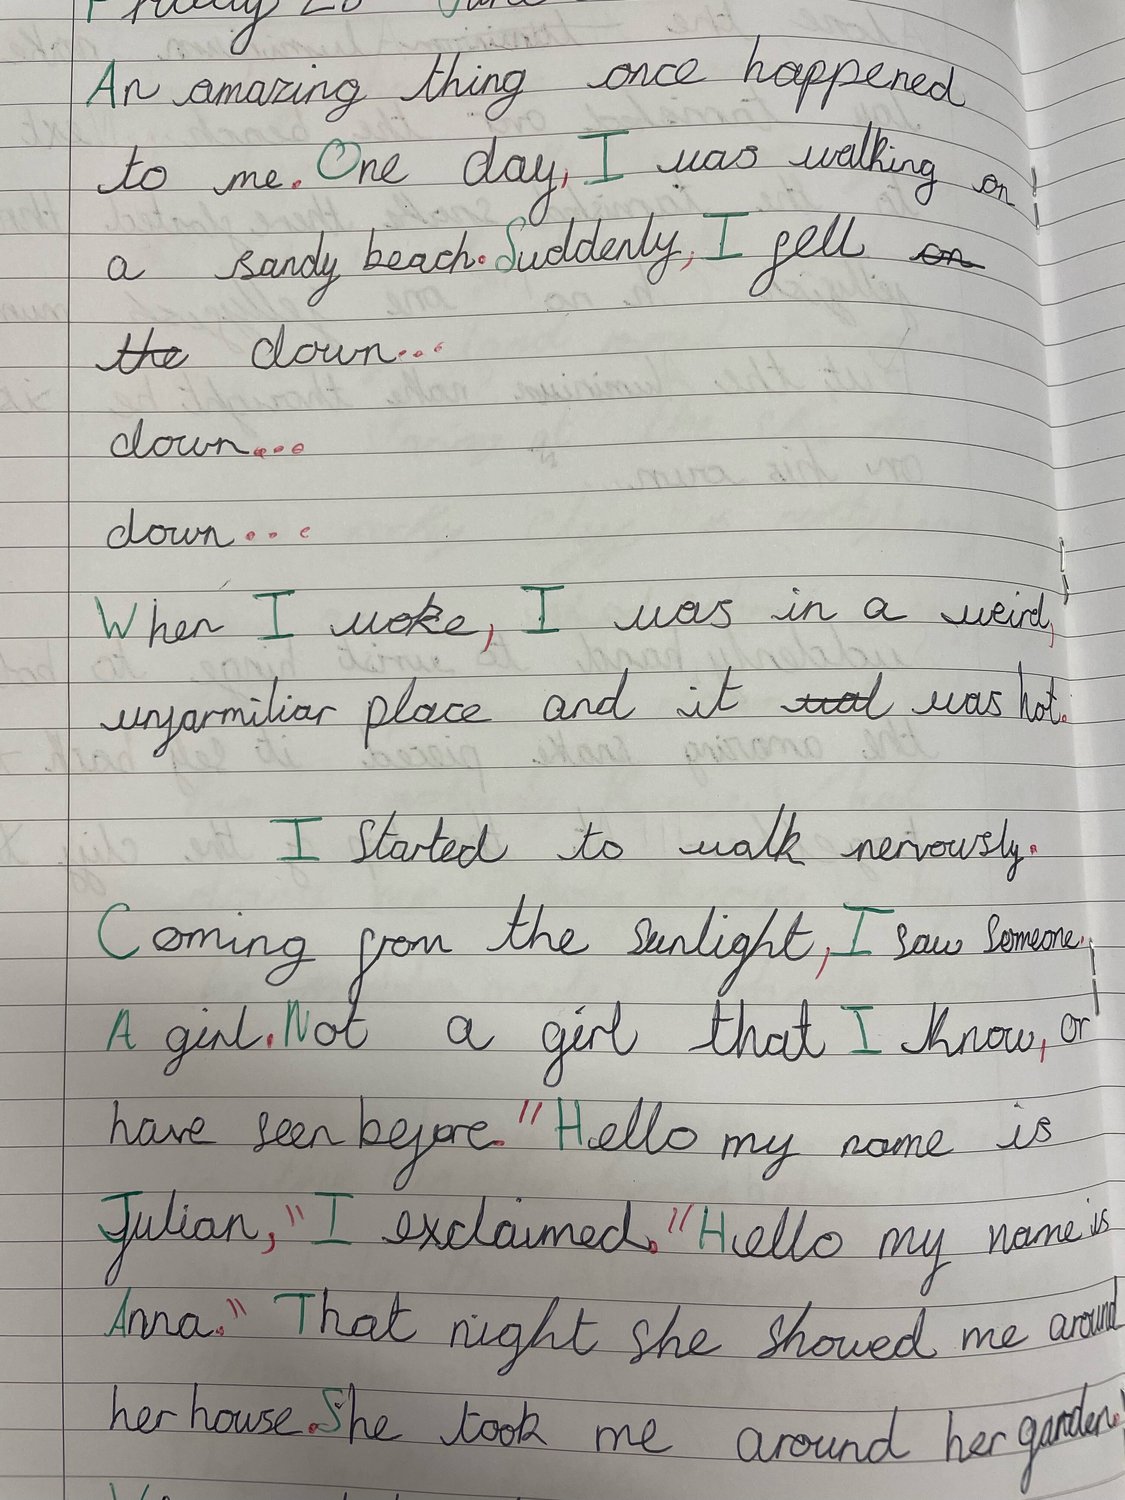 An amazing thing once happened
to me. One day, I was walking on
a sandy beach. Suddenly, I fell on
the down...
down...
down...
When I woke, I was in a weird,
unfarmiliar place and it was hot.
I started to walk nervously.
Coming from the sunlight, I saw someone.
A girl. Not a girl that I know, or
have seen before. "Hello my name is
Julian," I exclaimed. "Hello my name is
Anna." That night she showed me around
her house. She took me around her garden.